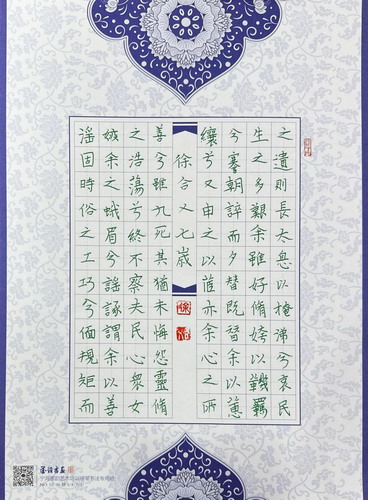 之遺則長太息以掩涕兮哀民
生之多艱余雖好脩姱以鞿羈
兮謇朝誶而夕替既替余以蕙
纕兮又申之以茝亦余心之所
徐合又七歲
善兮雖九死其猶未悔怨靈脩
之浩蕩兮終不察夫民心衆女
嫉余之蛾眉兮謠諑謂余以善
滛固時俗之工巧兮偭規矩而